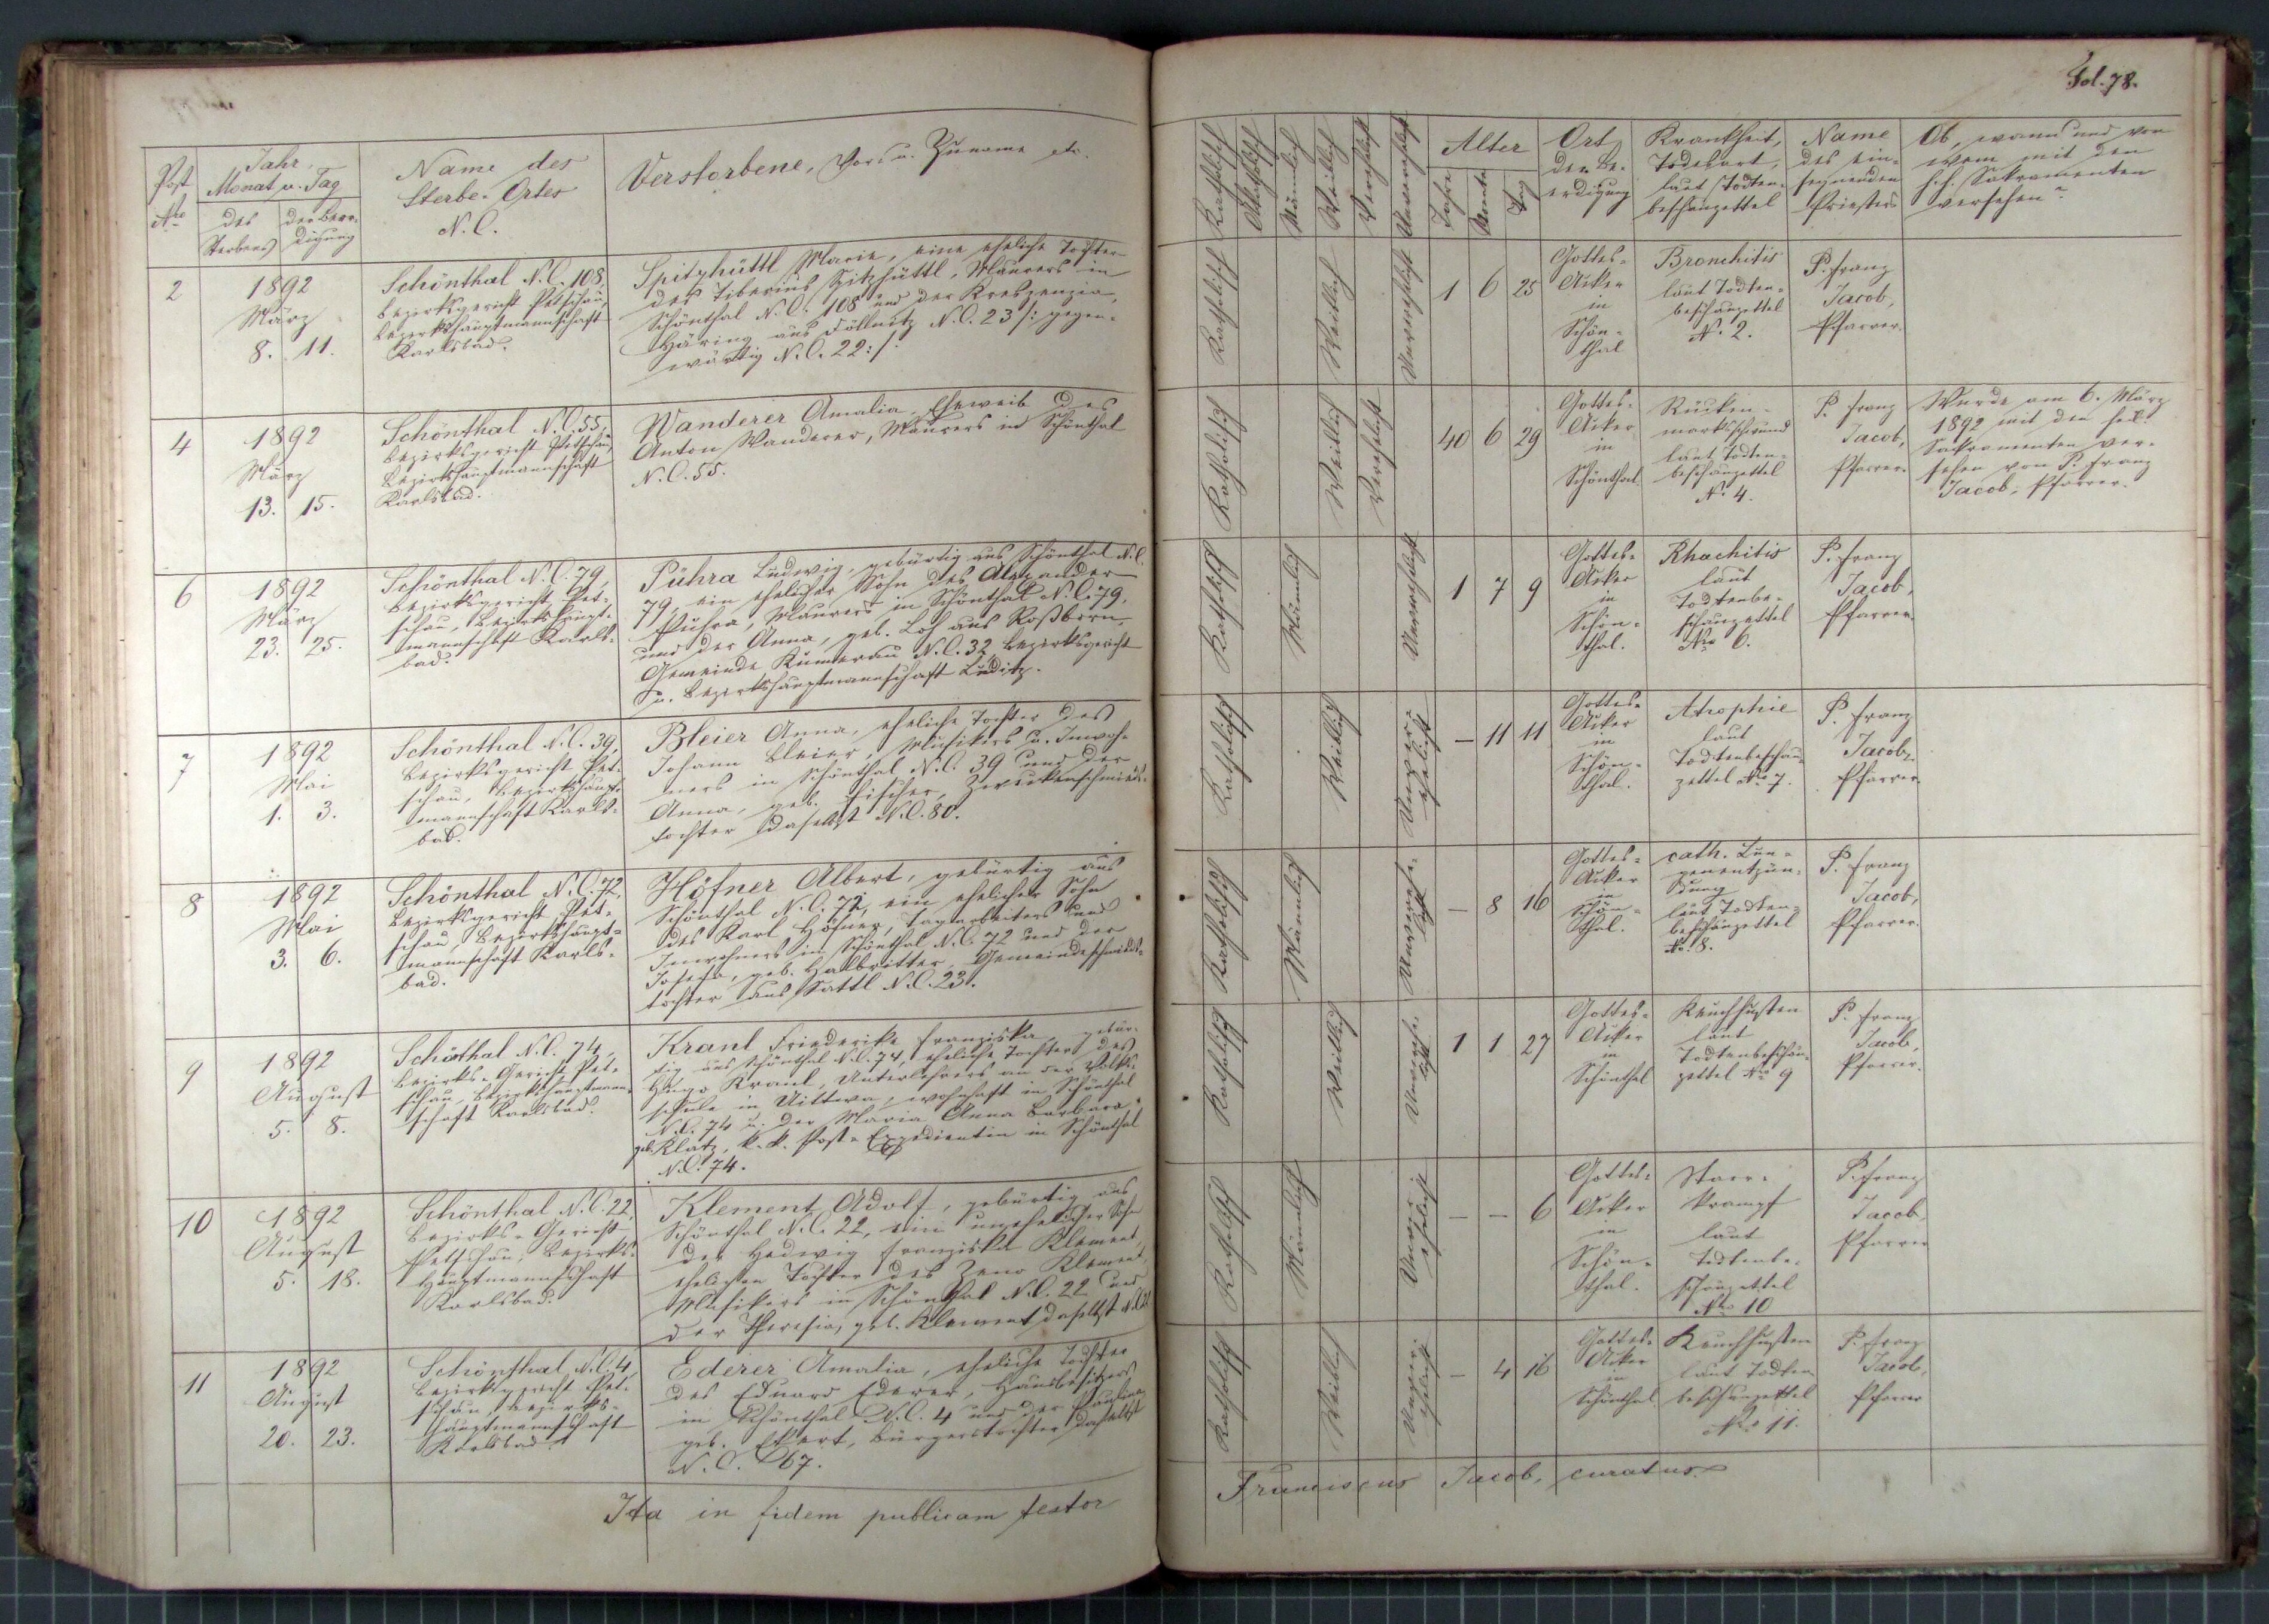 Fol. 78.
Post
Nro
Jahr,
Monat u. Tag
des
Sterbens
der Beer-
digung
Name des
Sterbe-Ortes
N. C.
Verstorbene, Vor- u. Zuname etc.
Katholisch
Akatholisch
Männlich
Weiblich
Verehelicht
Unverehelicht
Alter
Jahre
Monate
Tag
Ort
der Be-
erdigung
Krankheit,
Todesart,
laut Todten-
beschauzettel
Name
des ein-
segnenden
Priesters
Ob, wann und von
wem mit den
h.h. Sakramenten
versehen?
2
1892
März
8. 11.
Schönthal N.C. 108,
Bezirksgericht Petschau,
Bezirkshauptmannschaft
Karlsbad.
Spitzhüttl Marie, eine eheliche Tochter
des Tiberius Spitzhüttl, Maurers in
Schönthal N.C. 108 und der Kreszenzia,
Häring aus Föllnitz N.C. 23 /: gegen-
wärtig N.C. 22 :/
Katholisch
Weiblich
Unverehelicht
1 6 25
Gottes-
Acker
in
Schön-
thal
Bronchitis
laut Todten-
beschauzettel
N. 2.
P. Franz
Jacob,
Pfarrer.
4
1892
März
13. 15.
Schönthal N.C. 55,
Bezirksgericht Petschau,
Bezirkshauptmannschaft
Karlsbad.
Wanderer Amalia, Eheweib des
Anton Wanderer, Maurers in Schönthal
N.C. 55.
Katholisch
Weiblich
Verehelicht
40 6 29
Gottes-
Acker
in
Schönthal.
Rücken-
marksschwund
laut Todten-
beschauzettel
N. 4.
P. Franz
Jacob,
Pfarrer.
Wurde am 6. März
1892 mit den heil.
Sakramenten ver-
sehen von P. Franz
Jacob, Pfarrer.
6
1892
März
23. 25.
Schönthal N.C. 79,
Bezirksgericht Pet-
schau, Bezirkshaupt-
mannschaft Karls-
bad.
Pühra Ludwig, gebürtig aus Schönthal N.C.
79, ein ehelicher Sohn des Alexander
Pühra, Maurers in Schönthal N.C. 79,
und der Anna, geb. Loh aus Roßborn,
Gemeinde Kumerau N.C. 32 Bezirksgericht
u. Bezirkshauptmannschaft Luditz.
Katholisch
Männlich
Unverehelicht
1 7 9
Gottes-
Acker
in
Schön-
thal.
Rhachitis
laut
Todtenbe-
schauzettel
Nro 6.
P. Franz
Jacob,
Pfarrer.
7
1892
Mai
1. 3.
Schönthal N.C. 39,
Bezirksgericht Pet-
schau, Bezirkshaupt-
mannschaft Karls-
bad.
Bleier Anna, eheliche Tochter des
Johann Bleier, Musikers u. Inwoh-
ners in Schönthal N.C. 39 und der
Anna, geb. Fischer, Zweckenschmieds-
tochter daselbst N.C. 80.
Katholisch
Weiblich
Unver-
ehelicht
— 11 11
Gottes-
Acker
in
Schön-
thal.
Atrophie
laut
Todtenbeschau-
zettel Nro 7.
P. Franz
Jacob,
Pfarrer.
8
1892
Mai
3. 6.
Schönthal N.C. 72,
Bezirksgericht Pet-
schau, Bezirkshaupt-
mannschaft Karls-
bad.
Höfner Albert, gebürtig aus
Schönthal N.C. 72, ein ehelicher Sohn
des Karl Höfner, Tagarbeiters und
Inwohners in Schönthal N.C. 72 und der
Josefa, geb. Halbritter, Gemeindeschmieds-
tochter aus Sattl N.C. 23.
Katholisch
Männlich
Unverehe-
licht
— 8 16
Gottes-
Acker
in
Schön-
thal.
cath. Lun-
genentzün-
dung
laut Todten-
beschauzettel
No. 8.
P. Franz
Jacob,
Pfarrer.
9
1892
August
5. 8.
Schönthal N.C. 74,
Bezirks-Gericht Pet-
schau, Bezirkshauptmann-
schaft Karlsbad.
Kraul Friederike Franziska, gebür-
tig aus Schönthal N.C. 74, eheliche Tochter des
Hugo Kraul, Unterlehrers an der Volks-
schule in Uittwa, wohnhaft in Schönthal
N.C. 74 u. der Maria Anna Barbara,
geb. Klatz, k. k. Post-Expedientin in Schönthal
N.C. 74.
Katholisch
Weiblich
Unverehe-
licht
1 1 27
Gottes-
Acker
in
Schönthal
Keuchhusten
laut
Todtenbeschau-
zettel Nro 9
P. Franz
Jacob,
Pfarrer.
10
1892
August
5. 18.
Schönthal N.C. 22,
Bezirks-Gericht
Petschau, Bezirks-
Hauptmannschaft
Karlsbad.
Klement Adolf, gebürtig aus
Schönthal N.C. 22, ein unehelicher Sohn
der Hedwig Franziska Klement,
ehelichen Tochter des Zeno Klement,
Musikers in Schönthal N.C. 22 und
der Theresia, geb. Klement daselbst N.C. 22
Katholisch
Männlich
Unver-
ehelicht
— — 6
Gottes-
Acker
in
Schön-
thal.
Starr-
krampf
laut
Todtenbe-
schauzettel
Nro 10
P. Franz
Jacob,
Pfarrer
11
1892
August
20. 23.
Schönthal N.C. 4,
Bezirksgericht Pet-
schau, Bezirks-
hauptmannschaft
Karlsbad.
Ederer Amalia, eheliche Tochter
des Eduard Ederer, Hausbesitzers
in Schönthal N.C. 4 und der Paulina,
geb. Ekert, Bürgerstochter daselbst
N.C. 67.
Katholisch
Weiblich
Unver-
ehelicht
— 4 16
Gottes-
Acker
in
Schönthal
Keuchhusten
laut Todten-
beschauzettel
Nro 11.
P. Franz
Jacob,
Pfarrer
Ita in fidem publicam testor
Franciscus Jacob, curatus.